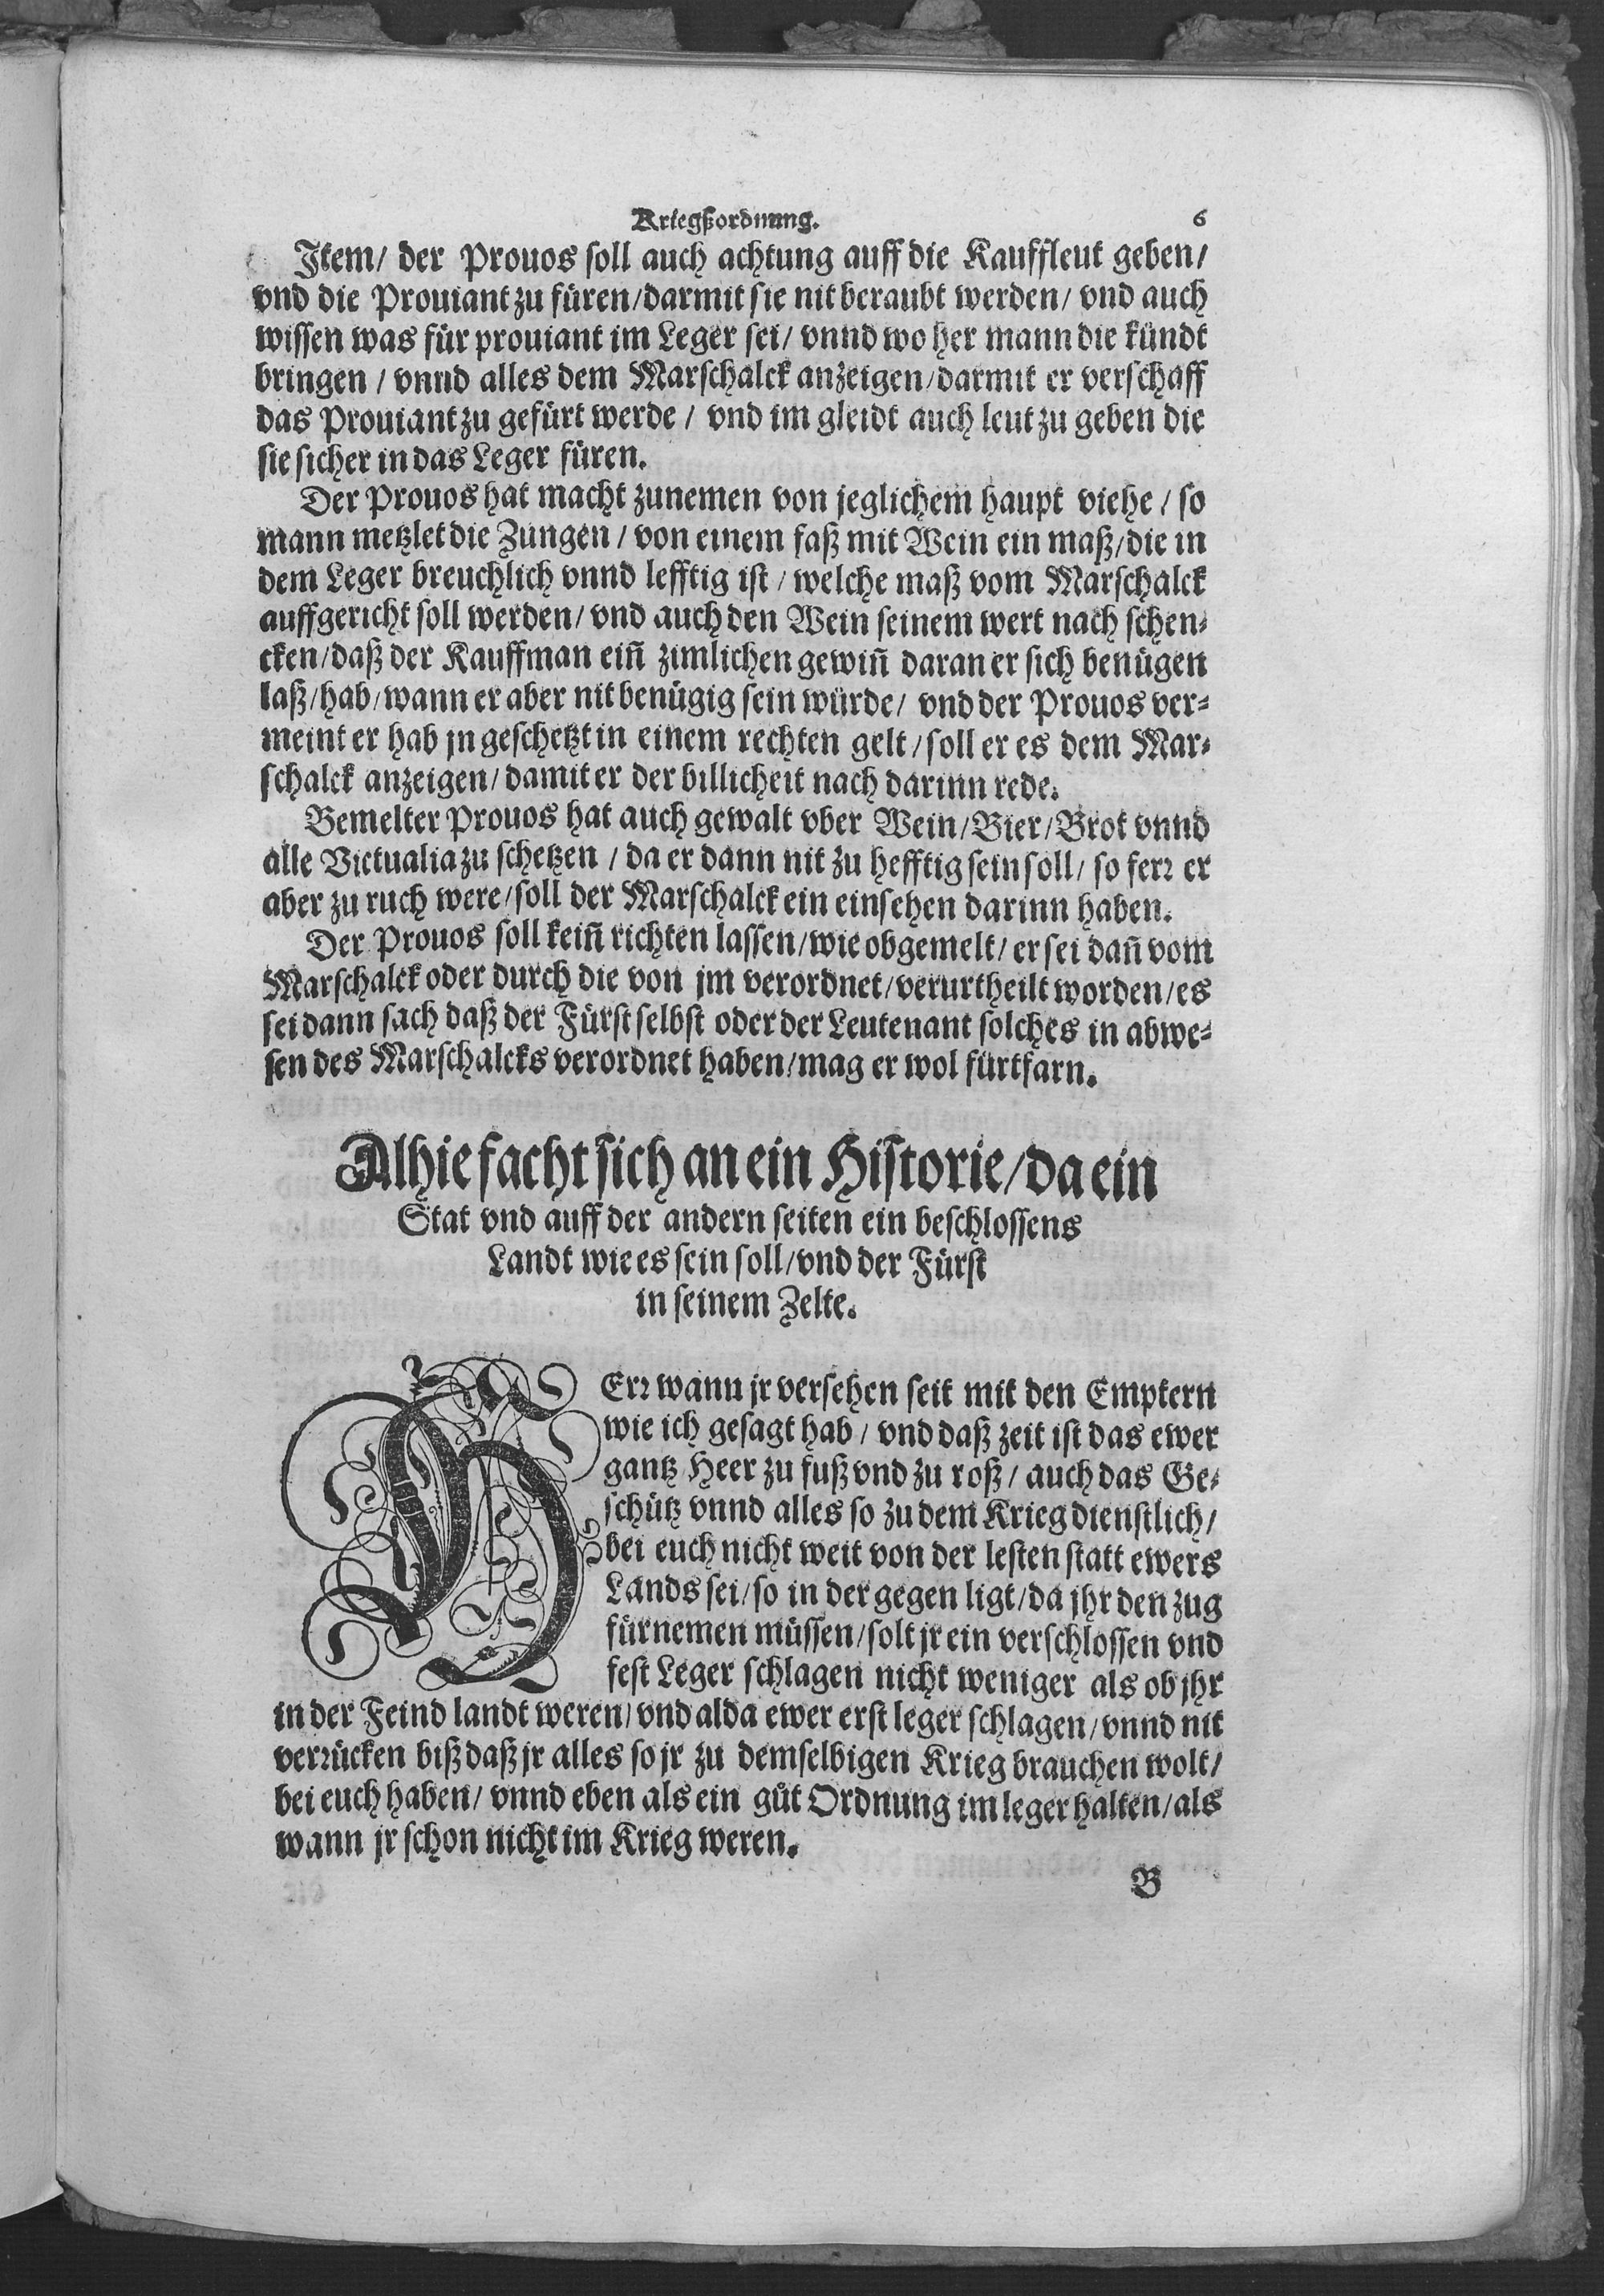 Kriegßordnung. 6
Item/ der Prouos soll auch achtung auff die Kauffleut geben/
vnd die Prouiant zu füren/darmit sie nit beraubt werden/ vnd auch
wissen was für prouiant im Leger sei/ vnnd wo her mann die kündt
bringen / vnnd alles dem Marschalck anzeigen/darmit er verschaff
das Prouiant zu gefürt werde / vnd im gleidt auch leut zu geben die
sie sicher in das Leger füren.
Der Prouos hat macht zunemen von jeglichem haupt viehe / so
mann metzlet die Zungen / von einem faß mit Wein ein maß/die in
dem Leger breuchlich vnnd lefftig ist / welche maß vom Marschalck
auffgericht soll werden/ vnd auch den Wein seinem wert nach schen-
cken/daß der Kauffman ein̄ zimlichen gewin̄ daran er sich benügen
laß/hab/wann er aber nit benügig sein würde/ vnd der Prouos ver-
meint er hab jn geschetzt in einem rechten gelt/soll er es dem Mar-
schalck anzeigen/damit er der billicheit nach darinn rede.
Bemelter Prouos hat auch gewalt vber Wein/Bier/Brot vnnd
alle Victualia zu schetzen / da er dann nit zu hefftig sein soll/ so ferr er
aber zu ruch were/soll der Marschalck ein einsehen darinn haben.
Der Prouos soll kein̄ richten lassen/wie obgemelt/er sei dan̄ vom
Marschalck oder durch die von jm verordnet/verurtheilt worden/es
sei dann sach daß der Fürst selbst oder der Leutenant solches in abwe-
sen des Marschalcks verordnet haben/mag er wol fürtfarn.
Alhie facht sich an ein Historie/da ein
Stat vnd auff der andern seiten ein beschlossens
Landt wie es sein soll/vnd der Fürst
in seinem Zelte.
HErr wann jr versehen seit mit den Emptern
wie ich gesagt hab / vnd daß zeit ist das ewer
gantz Heer zu fuß vnd zu roß / auch das Ge-
schütz vnnd alles so zu dem Krieg dienstlich/
bei euch nicht weit von der lesten statt ewers
Lands sei/so in der gegen ligt/da jhr den zug
fürnemen müssen/solt jr ein verschlossen vnd
fest Leger schlagen nicht weniger als ob jhr
in der Feind landt weren/vnd alda ewer erst leger schlagen/vnnd nit
verrücken biß daß jr alles so jr zu demselbigen Krieg brauchen wolt/
bei euch haben/ vnnd eben als ein gůt Ordnung im leger halten/als
wann jr schon nicht im Krieg weren.
B